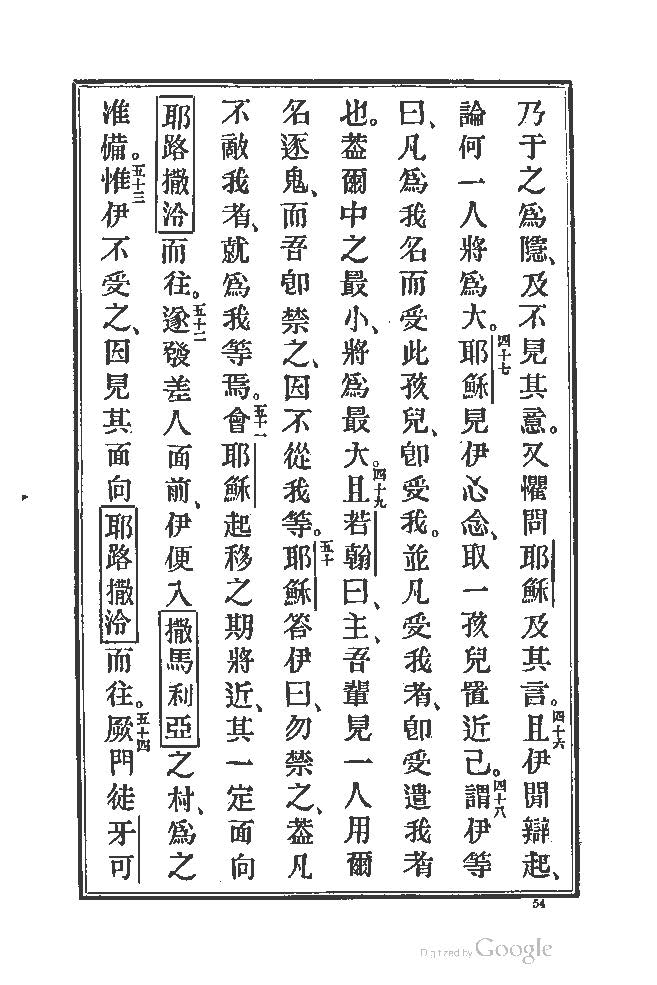 乃于之爲隱、及不見其意。又懼問耶穌及其言。四十六且伊閒辯起、
論何一人將爲大。四十七耶穌見伊心念、取一孩兒置近己。四十八謂伊等
曰、凡爲我名而受此孩兒、卽受我。並凡受我者、卽受遣我者
也。葢爾中之最小、將爲最大。四十九且若翰曰、主、吾輩見一人用爾
名逐鬼、而吾卽禁之、因不從我等。五十耶穌答伊曰、勿禁之、葢凡
不敵我者、就爲我等焉。五十一會耶穌起移之期將近、其一定面向
耶路撒冷而往。五十二遂發差人面前、伊便入撒馬利亞之村、爲之
准備。五十三惟伊不受之、因見其面向耶路撒冷而往。五十四厥門徒牙可
54
Digitized by Google